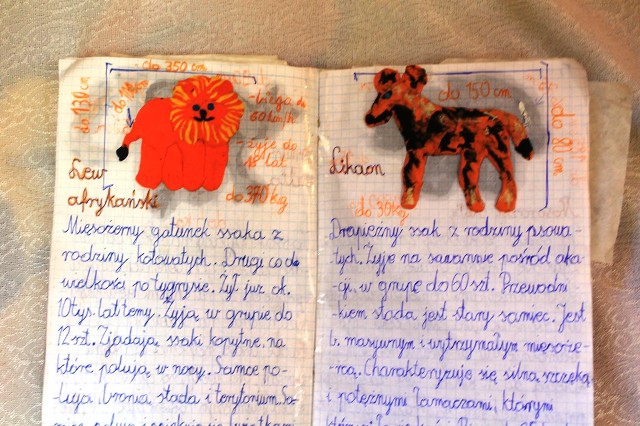 do 350 cm
do 130 cm
- biega do
60 km/h
- żyje do
18 lat
Lew
afrykański
do 370 kg
Mięsożerny gatunek ssaka z
rodziny kotowatych. Drugi co do
wielkości po tygrysie. Żył już ok.
10 tys. lat temu. Żyją w grupie do
12 szt. Zjadają ssaki kopytne, na
które polują w nocy. Samce po-
lują, bronią stada i terytorium. Sa-
do 150 cm
do 80 cm
Likaon
do 30 kg
Drapieżny ssak z rodziny psowa-
tych. Żyje na sawannie pośród aka-
cji, w grupie do 60 szt. Przewodni
kiem stada jest stary samiec. Jest
b. masywnym i wytrzymałym mięsoże-
rcą. Charakteryzuje się silną szczęką
i potężnymi łamaczami, którymi